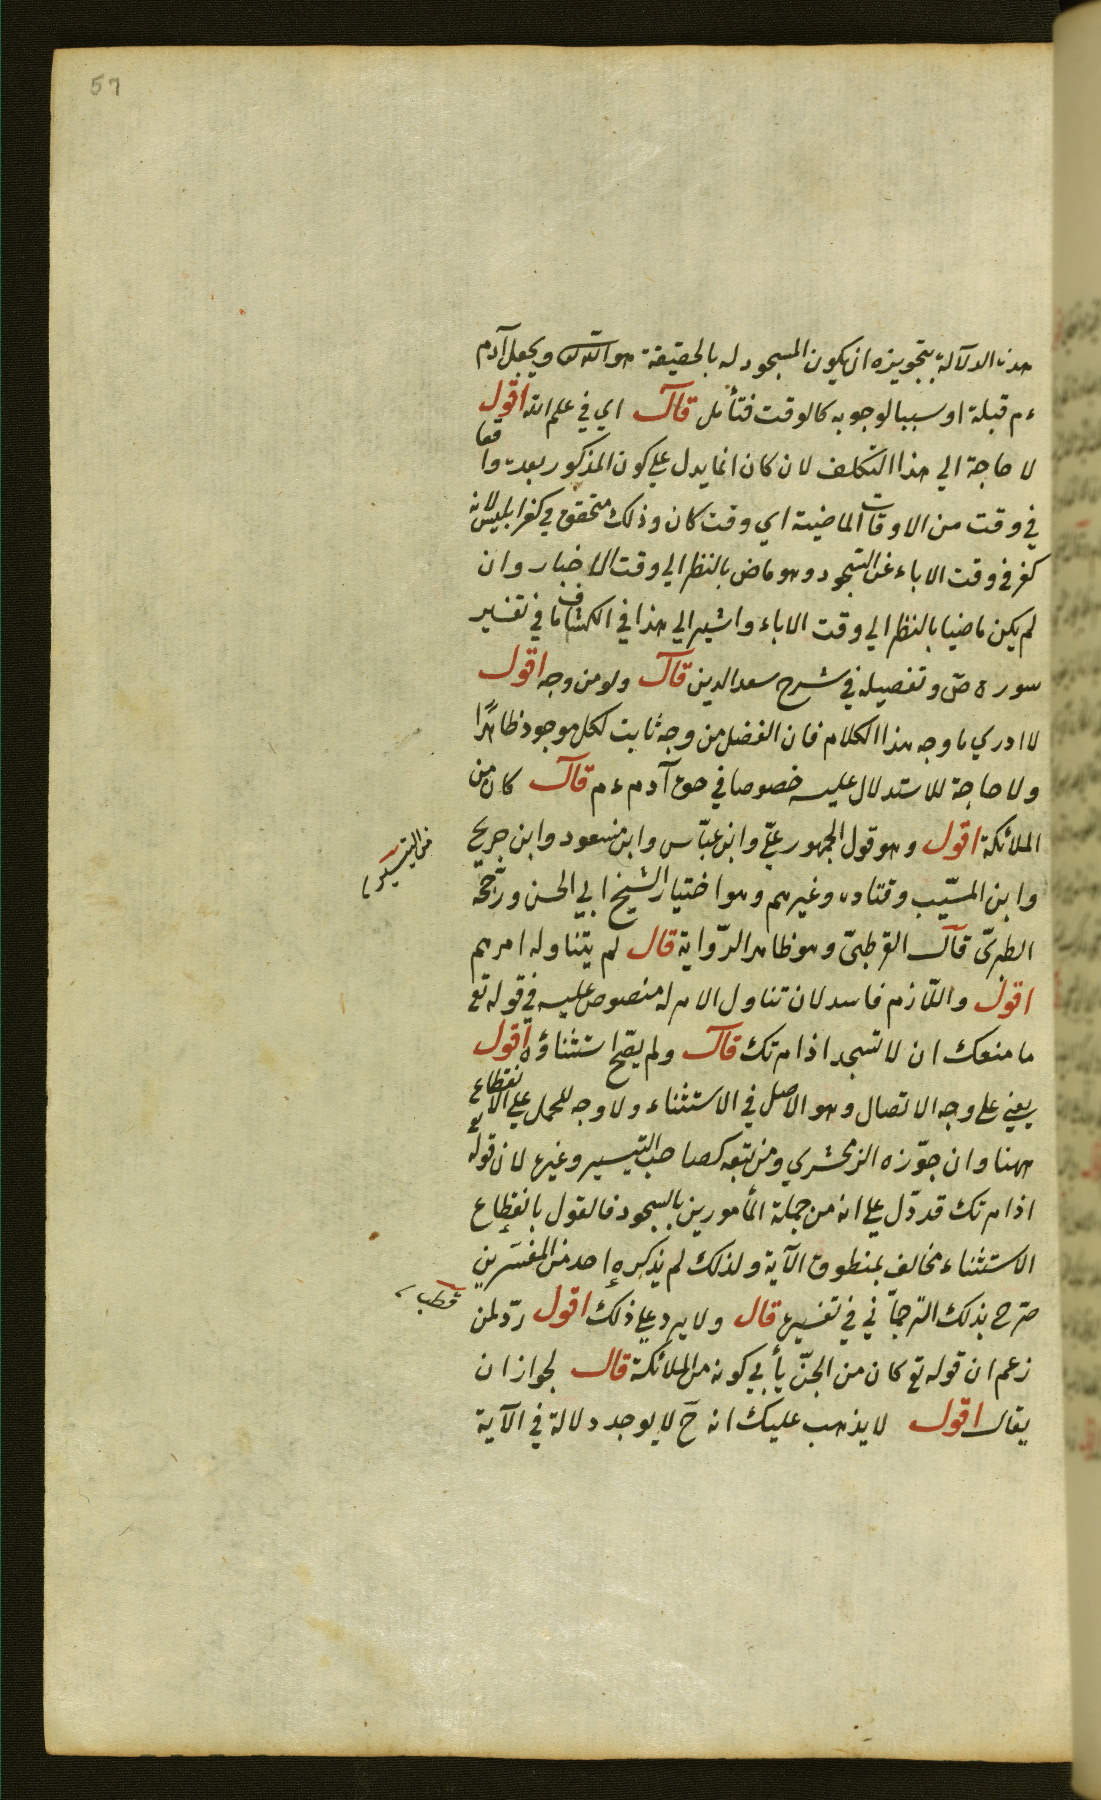 57
هذه الدلالة بتجويزه ان يكون المسجود له بالحقيقة هو الله ويجعل آدم
ءم قبلة او سببا لوجوبه كالوقت فتأمل قال اي في علم الله اقول
لا حاجة الي هذا التكلف لان كان انما يدل علي كون المذكور بعده واقعا
في وقت من الاوقات الماضية اي وقت كان وذلك متحقق في كفر ابليس لانه
كفر في وقت الاباء عن السجود وهو ماض بالنظر الي وقت الاخبار وان
لم يكن ماضيا بالنظر الي وقت الاباء واشير الي هذا في الكشاف ما في تفسير
سورة صٓ وتفصيله في شرح سعد الدين قال ولو من وجه اقول
لا ادري ما وجه هذا الكلام فان الفضل من وجه ثابت لكل موجود ظاهرًا
ولا حاجة للاستدلال عليه خصوصا في حق آدم ءم قال كان من
الملائكة اقول وهو قول الجمهور عليّ وابن عبّاس وابن مسعود وابن جريج
وابن المسيّب وقتاده وغيرهم وهو اختيار الشيخ ابي الحسن ورجّحه
الطبريّ قال القرطبيّ وهو ظاهر الرّواية قال لم يتناوله امرهم
اقول واللّازم فاسد لان تناول الامر له منصوص عليه في قوله تع
ما منعك ان لا تسجد اذ امرتك قال ولم يصّح استثناؤه اقول
يعني علي وجه الاتصال وهو الاصل في الاستثناء ولا وجه للحمل علي الانقطاع
ههنا وان جوّزه الزمخشري ومن تبعه كصاحب التيسير وغيره لان قوله تع
اذ امرتك قد دّل علي انه من جملة المأمورين بالسجود فالقول بانقطاع
الاستثناء مخالف بمنطوق الآية ولذلك لم يذكره احد من المفسّرين
صّرح بذلك الترجمّاني في تفسيره قال ولا يرد علي ذلك اقول ردّ لمن
زعم ان قوله تع كان من الجنّ يأبي كونه من الملائكة قال لجواز ان
يقال اقول لا يذهب عليك انه حٓ لا يوجد دلالة في الآية
من التيسير
قطب